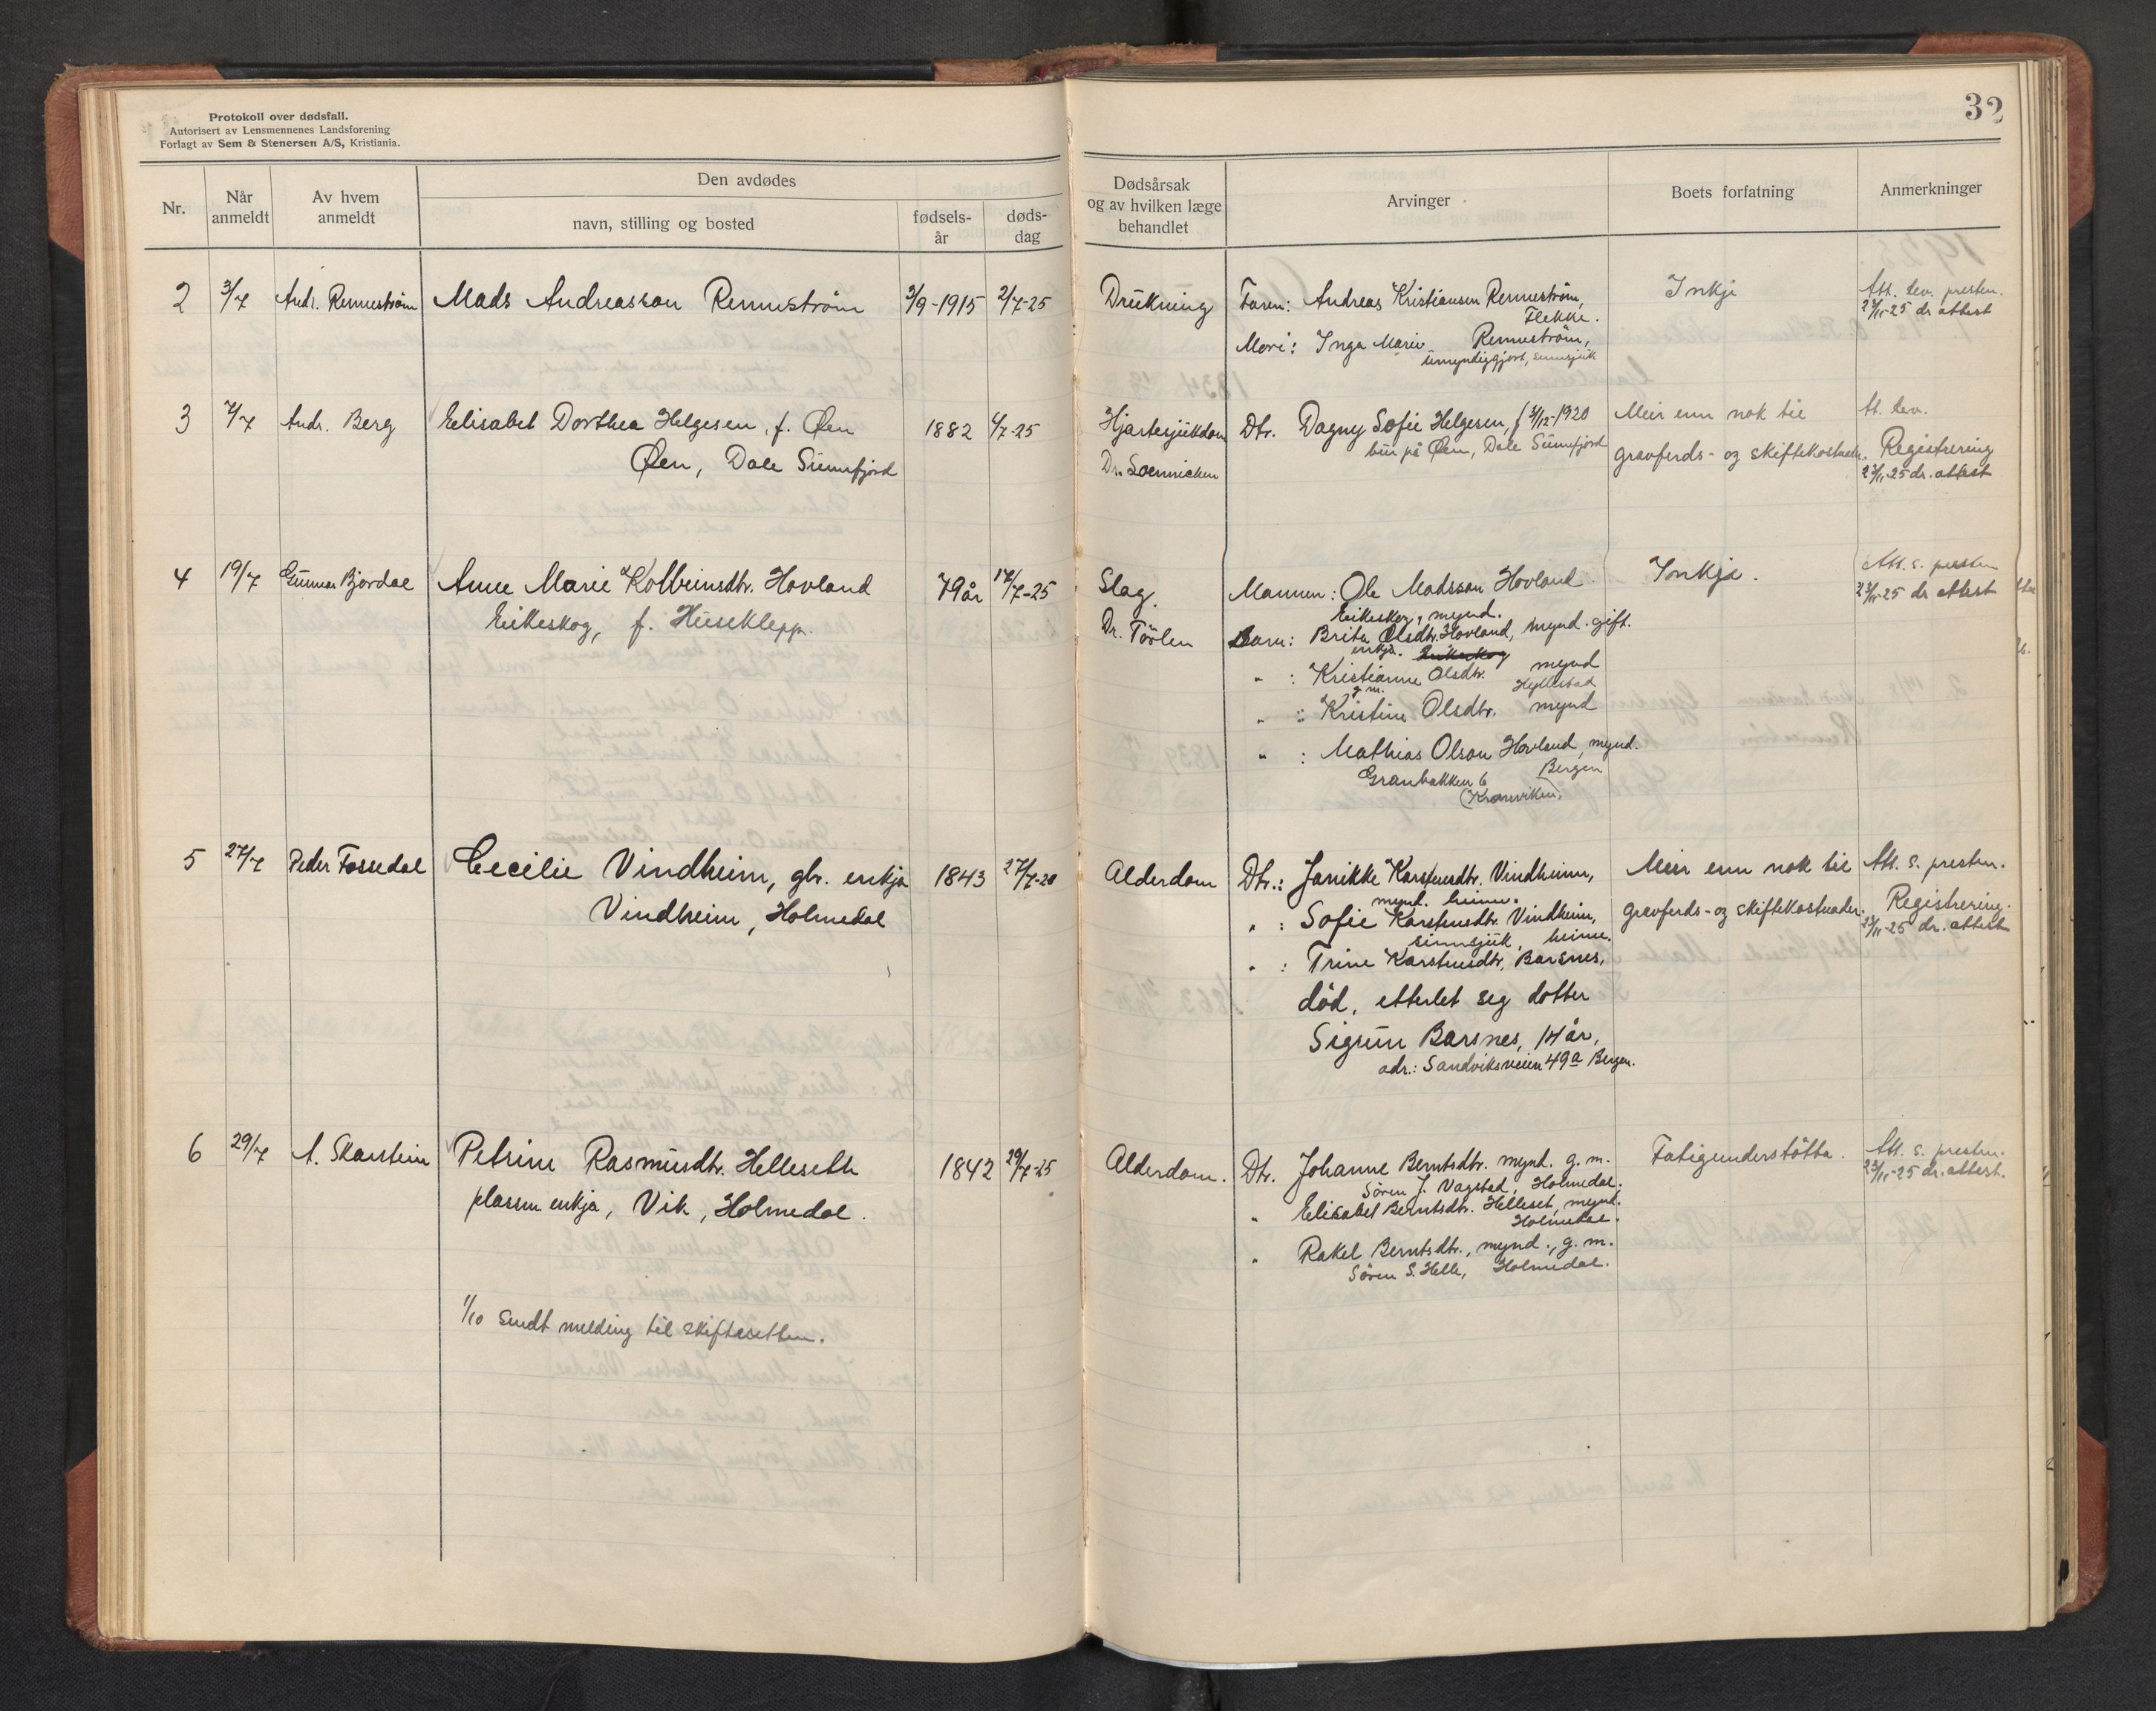 Protokoll over dødsfall.
Autorisert av Lensmennenes Landsforening
Forlagt av Sem & Stenersen A/S, Kristiania.
32
Nr.
Når anmeldt
Av hvem anmeldt
Den avdødes
navn, stilling og bosted
fødsels-år
døds-dag
Dødsårsak og av hvilken læge behandlet
Arvinger
Boets forfatning
Anmerkninger
2 3/7 Andr. Rennestrøm Mads Andreasson Rennestrøm 3/9-1915 2/7-25 Drukning Faren: Andreas Kristiansen Rennestrøm, Inkje Att. lev. presten.
Flekke. 23/11-25 dr attest
Mori: Inga Marie Rennestrøm,
umyndiggjort, sinnsjuk
3 7/7 Andr. Berg Elisabet Dorthea Helgesen, f. Øen 1882 4/7-25 Hjartesjukdom Dtr. Dagny Sofie Helgesen, f 3/12-1920 Meir enn nok til At. lev.
Øen, Dale Sunnfjord Dr. bur på Øen, Dale Sunnfjord gravferds- og skiftekostnader. Registrering
23/11-25 dr. attest
4 19/7 Gunnar Bjordal Anne Marie Kolbeinsdtr. Hovland 79 år 17/7-25 Slag. Mannen: Ole Madsson Hovland Inkje. Att. s. presten
Eikeskog, f. Huseklepp. Dr. Eikeskog, mynd. 23/11-25 dr attest
Barn: Brita Olsdtr. Hovland, mynd. gift.
enkja. Eikeskog
" : Kristianne Olsdtr. mynd
g.m. Hyllestad
" : Kristine Olsdtr. mynd
" : Mathias Olson Hovland, mynd.
Granbakken 6 Bergen
5 27/7 Peder Fossedal Cecilie Vindheim, gbr. enkja 1843 27/7-20 Alderdom Dtr.: Janikke Karstensdtr. Vindheim, Meir enn nok til Att. s. presten.
Vindheim, Holmedal mynd. heime. gravferds- og skiftekostnader. Registrering.
" : Sofie Karstensdtr. Vindheim, 23/11-25 dr. attest
sinnsjuk, heime.
" : Trine Karstensdtr. Barsnes,
död, etterlet seg dotter
Sigrun Barsnes, 14 år,
adr.: Sandviksveien 49a Bergen.
6 29/7 A. Skarstein Petrine Rasmusdtr. Helleseth 1842 29/7-25 Alderdom. Dtr. Johanne Berntsdtr. mynd. g. m. Fatigunderstötta. Att. s. presten.
plassen enkja, Vik, Holmedal. Sören J. Vagstad, Holmedal. 23/11-25 dr. attest.
" Elisabet Berntsdtr. Helleset, mynd.
Holmedal.
" Rakel Berntsdtr., mynd., g. m.
Sören S. Helle, Holmedal.
1/10 Sendt melding til skifteretten.